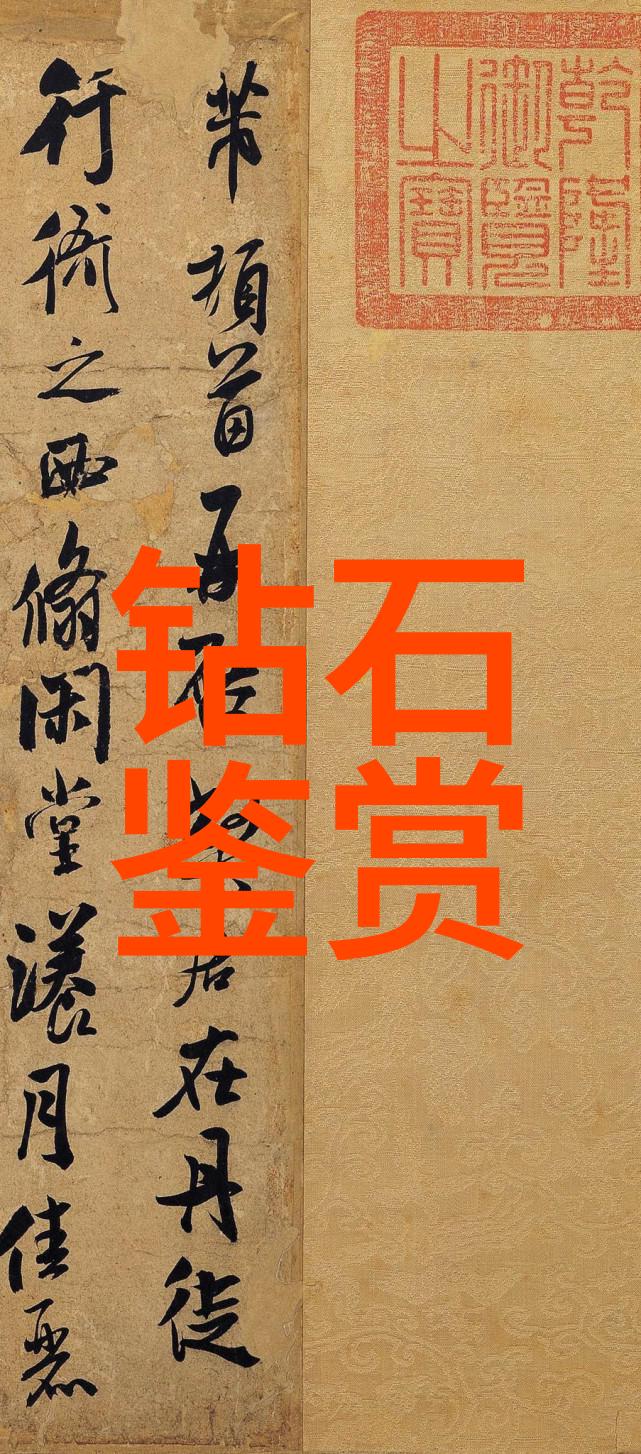 乾隆
御覽
之寶
芾頓首再居在丹徒
行衙之西翛閑堂漾月佳麗
钻石
鉴赏